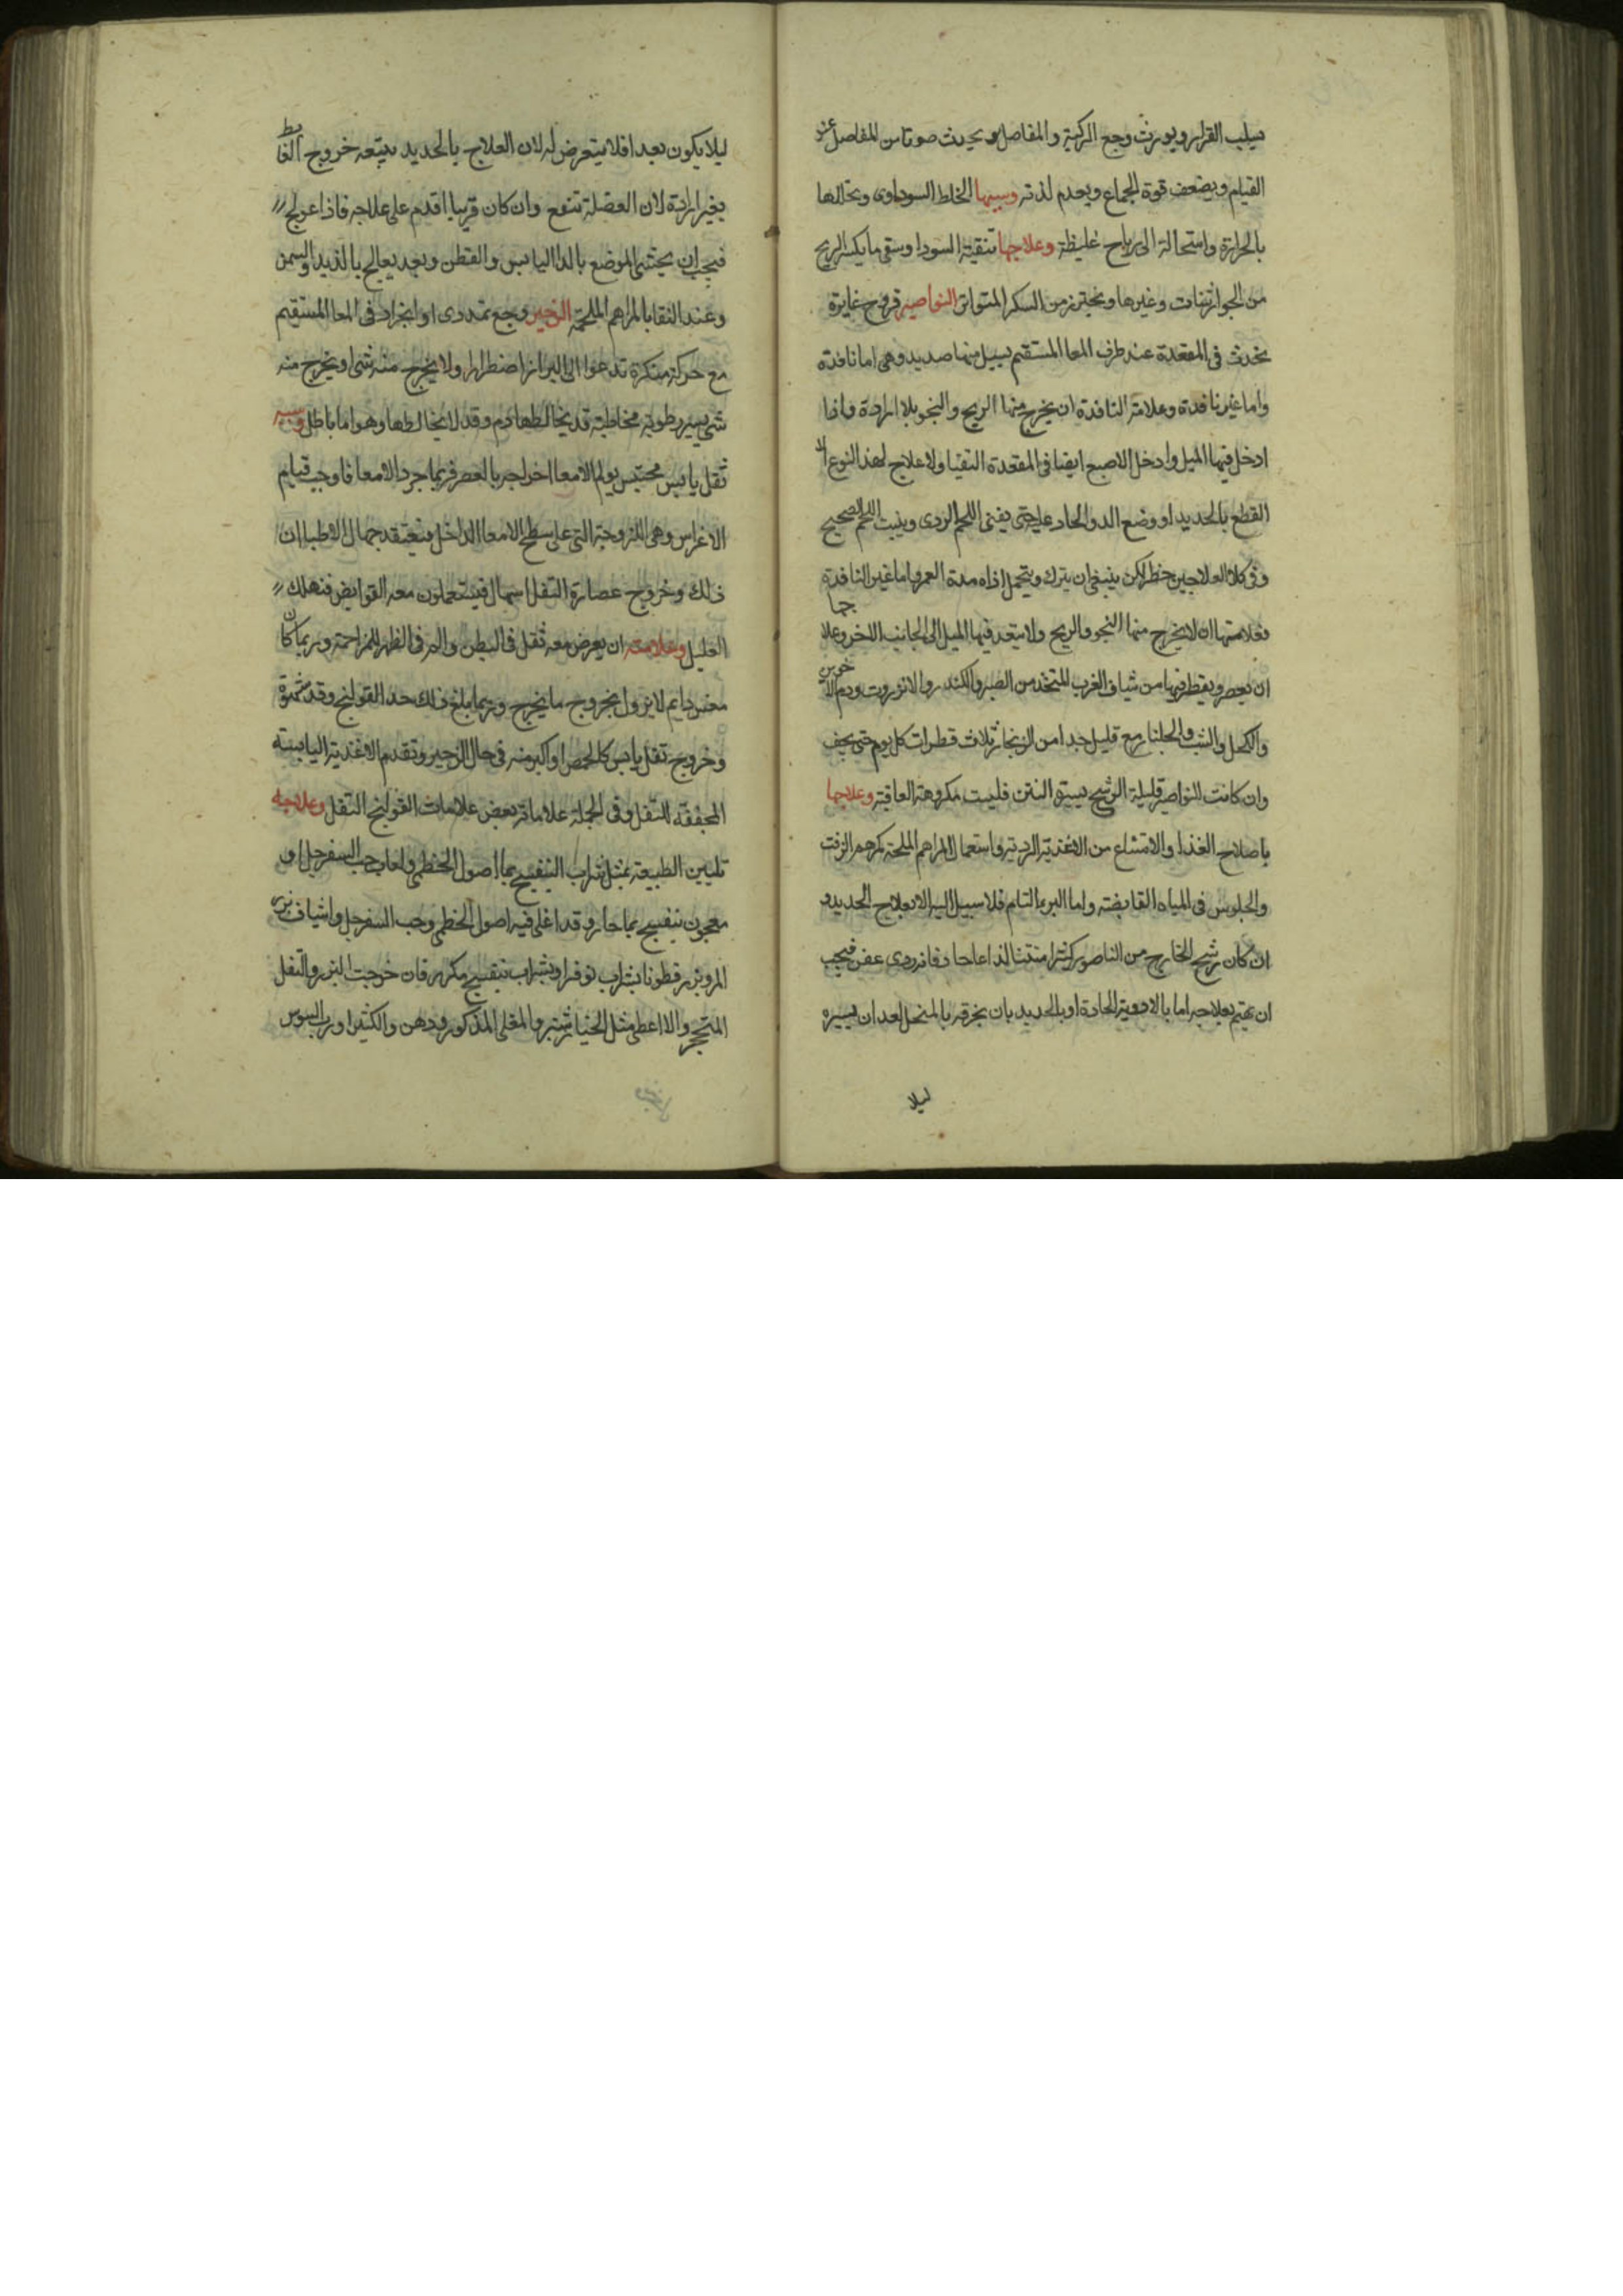 يسلب القرار ويورث وجع الركبة والمفاصل ويحدث صوتا من المفاصل عند
القيام ويضعف قوة الجماع ويعدم لذته وسببها الخلط السوداوى وتخللها
بالحرارة واستحالة الى رياح غليظة وعلاجها تنقية السودا وسقى ما يكسر الريح
من الجوارشات وغيرها ويحترز من السكر المتواتر النواصير قروح غايرة
يحدث فى المقعدة عند طرف المعا المستقيم يسيل منها صديد وهى اما نافذة
واما غير نافدة وعلامة النافدة ان يخرج منها الريح والنجو بلا ارادة واذا
ادخل فيها الميل وادخل الاصبع ايضا فى المقعدة التقيا ولا علاج لهذا النوع الا
القطع بالحديد او وضع الدوا الحاد عليه حتى يفنى اللحم الردى وينبت اللحم الصحيح
وفى كلا العلاجين خطر لكن ينبغى ان يترك ويتحمل اذاه مدة العمر واما غير النافدة
فعلامتها ان لا يخرج منها النجو والريح ولا يتعد فيها الميل الى الجانب الاخر وعلاجها
ان يعصر ويقطر فيها من شياف الغرب المتخذ من الصبر والكندر والانزروت ودم الاخوين
والكحل والشب والجلنار مع قليل جدا من الزنجار ثلاث قطرات كل يوم حتى يجف
وان كانت النواصير قليلة الرشح يسيرة النتن فليست مكروهة العاقبة وعلاجها
باصلاح الغذا والامتناع من الاغذية الردية واستعمال المراهم الملحمة كمرهم الزفت
والجلوس فى المياه القابضة واما البرء التام فلا سبيل اليه الا بعلاج الحديد و
ان كان رشح الخارج من الناصور كثيرا منتنا لذاعا حادا فانه ردى عفن فيجب
ان يهتم بعلاجه اما بالادوية الحادة او بالحديد بان يخرقه بالمنجل بعد ان يسبره
ليلا
ليلا يكون بعيدا فلا يتعرض له لان العلاج بالحديد يتبعه خروج الغايط
بغير ارادة لان العضلة تنقع وان كان قريبا اقدم على علاجه فاذا عولج
فيجب ان يحتشى الموضع بالدوا اليابس والقطن وبعد يعالج بالذيد والسمن
وعند النقا بالمراهم الملحمة الزحير وجع تمددى او انجراد فى المعا المستقيم
مع حركة منكرة تدعوا الى البراز اضطرارا ولا يخرج منه شى او يخرج منه
شى يسير رطوبة مخاطية قد يخالطها دم وقد لا يخالطها وهو اما باطل وسببه
ثقل يابس محتبس يولم الامعا اخراجه بالعصر فربما جرد الامعا فاوجب قيام
الاغراس وهى اللزوجة التى على سطح الامعا الداخل فيعتقد جهال الاطبا ان
ذلك وخروج عصارة الثفل اسهال فيستعملون معه القوابض فتهلك
العليل وعلامته ان يعرض معه ثقل فى البطن والم فى الظهر للمزاحمة وربما كان
مغس دايم لا يزول بخروج ما يخرج وربما بلغ ذلك حد القولنج وقد
وخروج ثفل يابس كالحمص او اكبر منه فى حال الزحير وتقدم الاغذية اليابسة
المجففة للثفل وفى الجملة علاماته بعض علامات القولنج الثفلى وعلاجه
تليين الطبيعة بمثل شراب البنفسج بماء اصول الخطمى ولعاب حب السفرجل او
معجون بنفسج بما حار وقد اغلى فيه اصول الخطمى وحب السفرجل واشياف بزر
المرو وبزر قطونا بشراب نوفر او بشراب بنفسج مكرر فان خرجت البزر والثفل
المتحجر والا اعطى مثل الخيارشنبر والمغلى المذكور ودهن والكثيرا ورب السوس